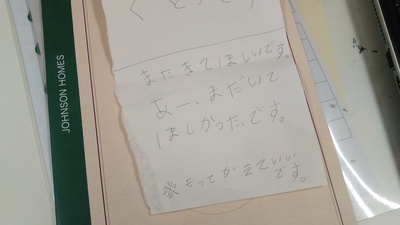 またきてほしいです。
あー、まだいて
ほしかったです。
※もってかえっていい
です。
JOHNSON HOMES